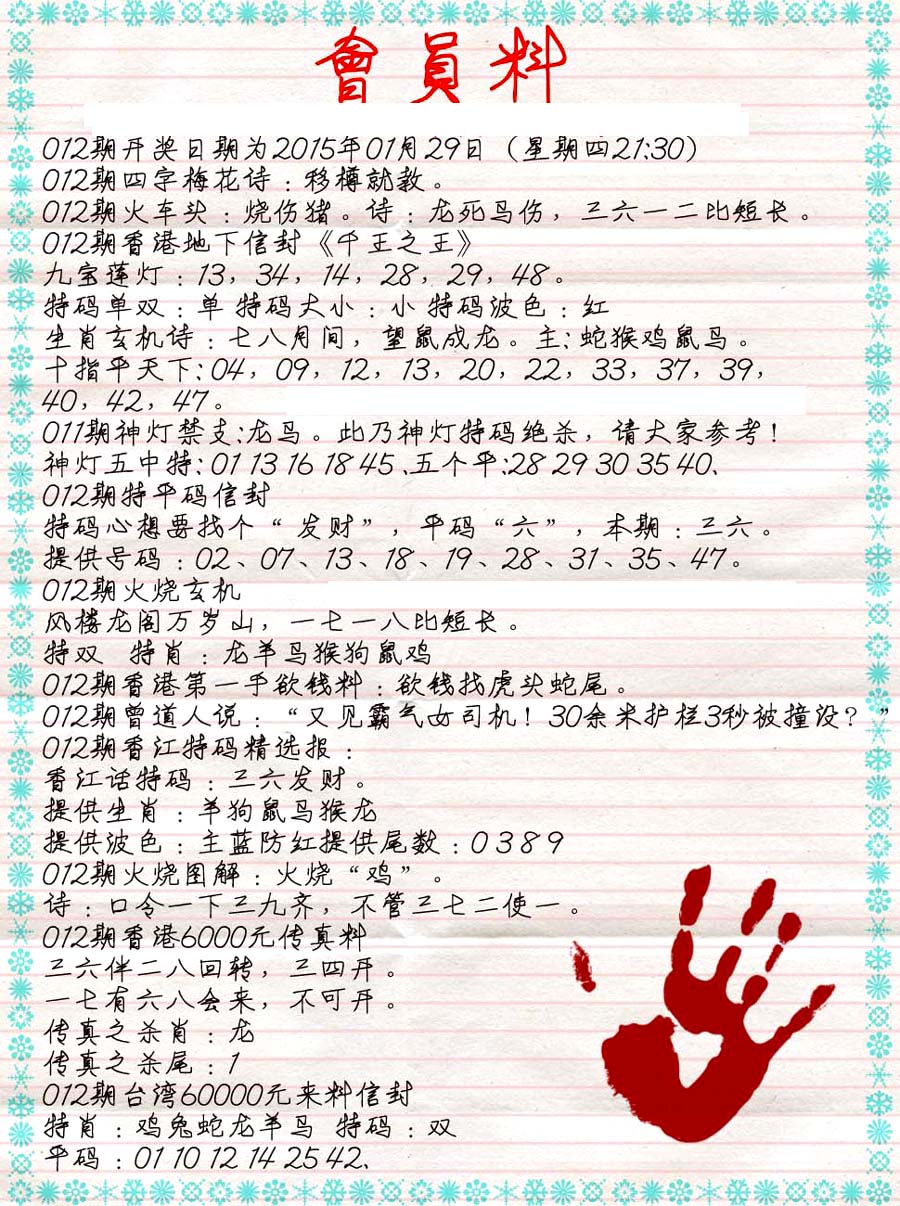 會員料
012期开奖日期为2015年01月29日（星期四21:30）
012期四字梅花诗：移樽就教。
012期火车头：烧伤猪。诗：龙死鸟伤，三六一二比短长。
012期香港地下信封《千王之王》
九宝莲灯：13，34，14，28，29，48。
特码单双：单 特码大小：小 特码波色：红
生肖玄机诗：七八月间，望鼠成龙。主：蛇猴鸡鼠鸟。
十指平天下：04，09，12，13，20，22，33，37，39，
40，42，47。
011期神灯禁支:龙鸟。此乃神灯特码绝杀，请大家参考！
神灯五中特：01 13 16 18 45 、五个平:28 29 30 35 40、
012期特平码信封
特码心想要找个“ 发财”，平码“六”，本期：三六。
提供号码：02、07、13、18、19、28、31、35、47。
012期火烧玄机
风楼龙阁万岁山，一七一八比短长。
特双 特肖：龙羊鸟猴狗鼠鸡
012期香港第一手欲钱料：欲钱找虎头蛇尾。
012期曾道人说：“又见霸气女司机！30余米护栏3秒被撞没？”
012期香江特码精选报：
香江话特码：三六发财。
提供生肖：羊狗鼠鸟猴龙
提供波色：主蓝防红提供尾数：0 3 8 9
012期火烧图解：火烧“鸡”。
诗：口令一下三九齐，不管三七二使一。
012期香港6000元传真料
三六伴二八回转，三四开。
一七有六八会来，不可开。
传真之杀肖：龙
传真之杀尾：1
012期台湾60000元来料信封
特肖：鸡兔蛇龙羊鸟 特码：双
平码：01 10 12 14 25 42、